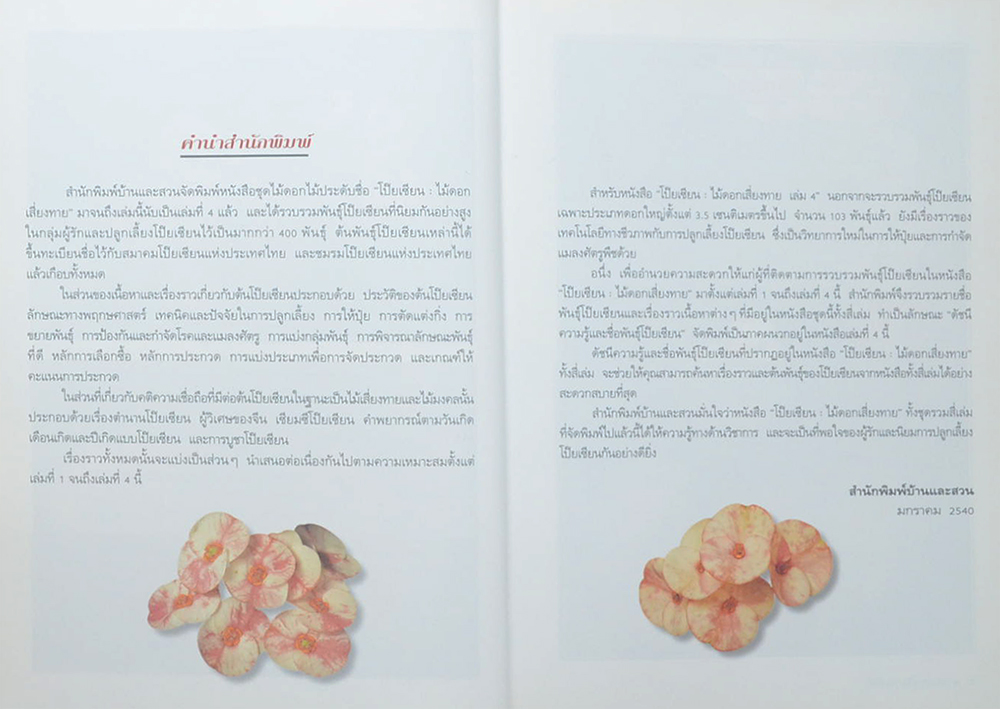 คำนำสำนักพิมพ์
สำนักพิมพ์บ้านและสวนจัดพิมพ์หนังสือชุดไม้ดอกไม้ประดับชื่อ "โป๊ยเซียน : ไม้ดอก
เสี่ยงทาย" มาจนถึงเล่มนี้นับเป็นเล่มที่ 4 แล้ว และได้รวบรวมพันธุ์โป๊ยเซียนที่นิยมกันอย่างสูง
ในกลุ่มผู้รักและปลูกเลี้ยงโป๊ยเซียนไว้เป็นมากกว่า 400 พันธุ์ ต้นพันธุ์โป๊ยเซียนเหล่านี้ได้
ขึ้นทะเบียนชื่อไว้กับสมาคมโป๊ยเซียนแห่งประเทศไทย และชมรมโป๊ยเซียนแห่งประเทศไทย
แล้วเกือบทั้งหมด
ในส่วนของเนื้อหาและเรื่องราวเกี่ยวกับต้นโป๊ยเซียนประกอบด้วย ประวัติของต้นโป๊ยเซียน
ลักษณะทางพฤกษศาสตร์ เทคนิคและปัจจัยในการปลูกเลี้ยง การให้ปุ๋ย การตัดแต่งกิ่ง การ
ขยายพันธุ์ การป้องกันและกำจัดโรคและแมลงศัตรู การแบ่งกลุ่มพันธุ์ การพิจารณาลักษณะพันธุ์
ที่ดี หลักการเลือกซื้อ หลักการประกวด การแบ่งประเภทเพื่อการจัดประกวด และเกณฑ์ให้
คะแนนการประกวด
ในส่วนที่เกี่ยวกับคติความเชื่อถือที่มีต่อต้นโป๊ยเซียนในฐานะเป็นไม้เสี่ยงทายและไม้มงคลนั้น
ประกอบด้วยเรื่องตำนานโป๊ยเซียน ผู้วิเศษของจีน เซียมซีโป๊ยเซียน คำพยากรณ์ตามวันเกิด
เดือนเกิดและปีเกิดแบบโป๊ยเซียน และการบูชาโป๊ยเซียน
เรื่องราวทั้งหมดนั้นจะแบ่งเป็นส่วนๆ นำเสนอต่อเนื่องกันไปตามความเหมาะสมตั้งแต่
เล่มที่ 1 จนถึงเล่มที่ 4 นี้
สำหรับหนังสือ "โป๊ยเซียน : ไม้ดอกเสี่ยงทาย เล่ม 4" นอกจากจะรวบรวมพันธุ์โป๊ยเซียน
เฉพาะประเภทดอกใหญ่ตั้งแต่ 3.5 เซนติเมตรขึ้นไป จำนวน 103 พันธุ์แล้ว ยังมีเรื่องราวของ
เทคโนโลยีทางชีวภาพกับการปลูกเลี้ยงโป๊ยเซียน ซึ่งเป็นวิทยาการใหม่ในการให้ปุ๋ยและการกำจัด
แมลงศัตรูพืชด้วย
อนึ่ง เพื่ออำนวยความสะดวกให้แก่ผู้ที่ติดตามการรวบรวมพันธุ์โป๊ยเซียนในหนังสือ
"โป๊ยเซียน : ไม้ดอกเสี่ยงทาย" มาตั้งแต่เล่มที่ 1 จนถึงเล่มที่ 4 นี้ สำนักพิมพ์จึงรวบรวมรายชื่อ
พันธุ์โป๊ยเซียนและเรื่องราวเนื้อหาต่างๆ ที่มีอยู่ในหนังสือชุดนี้ทั้งสี่เล่ม ทำเป็นลักษณะ "ดัชนี
ความรู้และชื่อพันธุ์โป๊ยเซียน" จัดพิมพ์เป็นภาคผนวกอยู่ในหนังสือเล่มที่ 4 นี้
ดัชนีความรู้และชื่อพันธุ์โป๊ยเซียนที่ปรากฏอยู่ในหนังสือ "โป๊ยเซียน : ไม้ดอกเสี่ยงทาย"
ทั้งสี่เล่ม จะช่วยให้คุณสามารถค้นหาเรื่องราวและต้นพันธุ์ของโป๊ยเซียนจากหนังสือทั้งสี่เล่มได้อย่าง
สะดวกสบายที่สุด
สำนักพิมพ์บ้านและสวนมั่นใจว่าหนังสือ "โป๊ยเซียน : ไม้ดอกเสี่ยงทาย" ทั้งชุดรวมสี่เล่ม
ที่จัดพิมพ์ไปแล้วนี้ได้ให้ความรู้ทางด้านวิชาการ และจะเป็นที่พอใจของผู้รักและนิยมการปลูกเลี้ยง
โป๊ยเซียนกันอย่างดียิ่ง
สำนักพิมพ์บ้านและสวน
มกราคม 2540